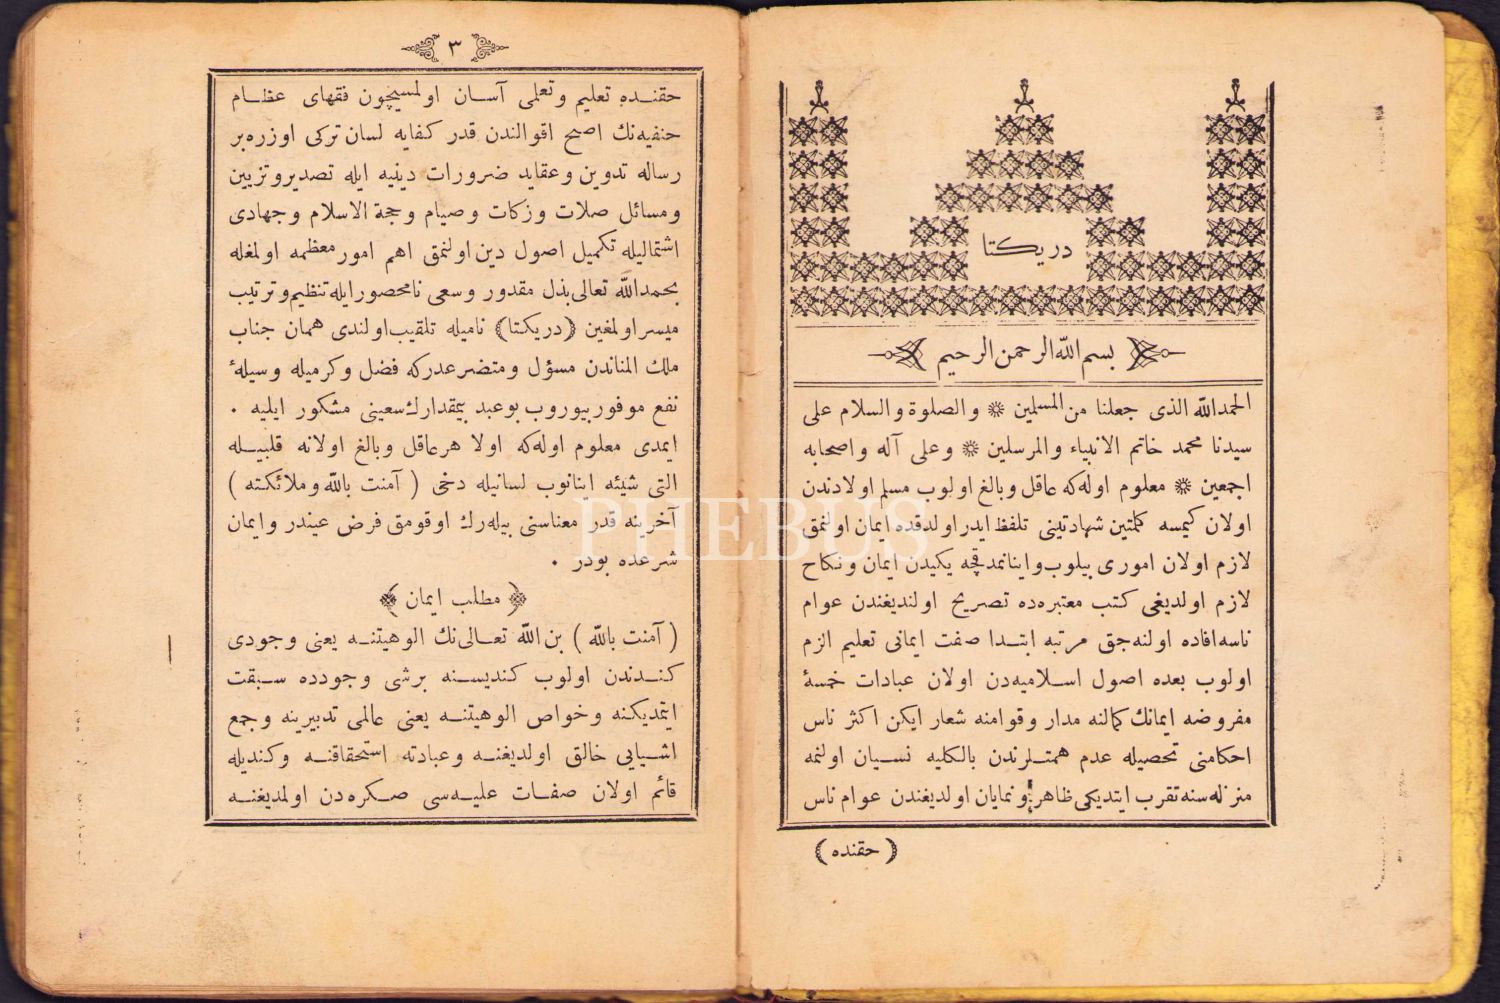 در يكتا
بسم الله الرحمن الرحيم
الحمد الله الذى جعلنا من المسلمين ۞ والصلوة والسلام على
سيدنا محمد خاتم الانبياء والمرسلين ۞ وعلى آله واصحابه
اجمعين ۞ معلوم اوله كه عاقل وبالغ اولوب مسلم اولادندن
اولان كيمسه كلمتين شهادتينى تلفظ ايدر اولدقده ايمان اولنمق
لازم اولان امورى بيلوب واينانمدقجه يكيدن ايمان ونكاح
لازم اولديغى كتب معتبره ده تصريح اولنديغندن عوام
ناسه افاده اولنه جق مرتبه ابتدا صفت ايمانى تعليم الزم
اولوب بعده اصول اسلاميه دن اولان عبادات خمسۀ
مفروضه ايمانك كمالنه مدار وقوامنه شعار ايكن اكثر ناس
احكامنى تحصيله عدم همتلرندن بالكليه نسيان اولنمه
منزله سنه تقرب ايتديكى ظاهر ونمايان اولديغندن عوام ناس
( حقنده )
٣
حقنده تعليم وتعلمى آسان اولمسيچون فقهاى عظام
حنفيه نك اصح اقوالندن قدر كفايه لسان تركى اوزره بر
رساله تدوين وعقايد ضرورات دينيه ايله تصدير وتزيين
ومسائل صلات وزكات وصيام وحجة الاسلام وجهادى
اشتماليله تكميل اصول دين اولنمق اهم امور معظمه اولمغله
بحمد الله تعالى بذل مقدور وسعى نامحصور ايله تنظيم وترتيب
ميسر اولمغين ( در يكتا ) ناميله تلقيب اولندى همان جناب
ملك المناندن مسؤل ومتضرعدركه فضل وكرميله وسيلۀ
نفع موفور بيوروب بو عبد بيمقدارك سعينى مشكور ايليه .
ايمدى معلوم اوله كه اولا هر عاقل وبالغ اولانه قلبيله
التى شيئه اينانوب لسانيله دخى ( آمنت بالله وملائكته )
آخرينه قدر معناسنى بيله رك اوقومق فرض عيندر وايمان
شرعده بودر .
﴿ مطلب ايمان ﴾
( آمنت بالله ) بن الله تعالى نك الوهيتنه يعنى وجودى
كندندن اولوب كنديسنه برشى وجودده سبقت
ايتمديكنه وخواص الوهيتنه يعنى عالمى تدبيرينه وجمع
اشيايى خالق اولديغنه وعبادته استحقاقنه وكنديله
قائم اولان صفات عليه سى صكره دن اولمديغنه
PHEBUS